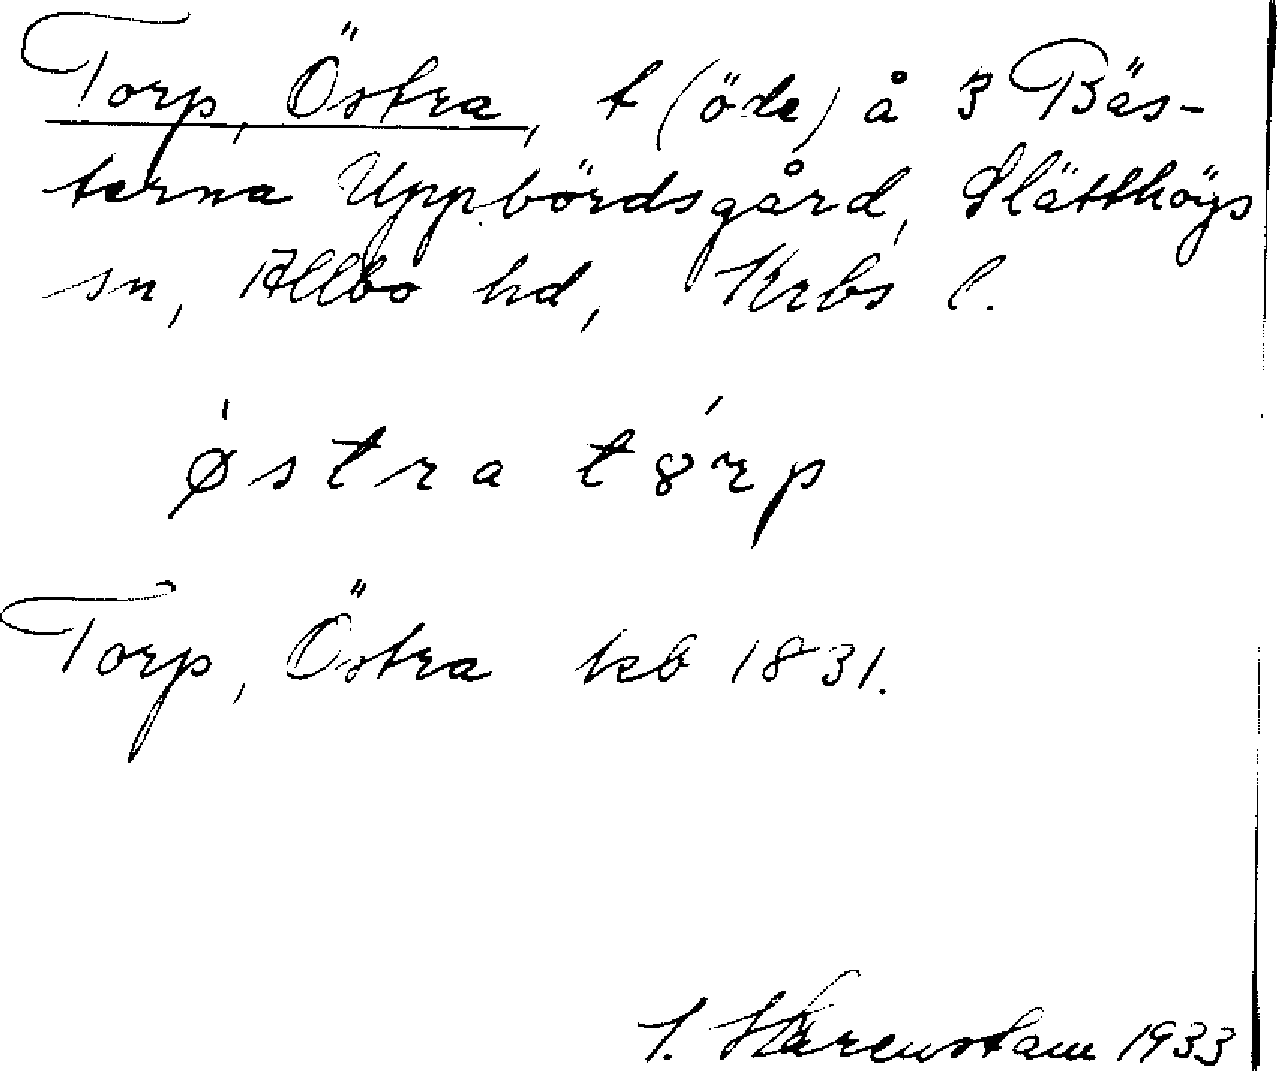 Torp, Östra, t (öde) å 3 Bäs-
terna Uppbördsgård, Slätthögs
sn, Allbo hd, Krbs l.
østra tørp
Torp, Östra kb 1831.
1933